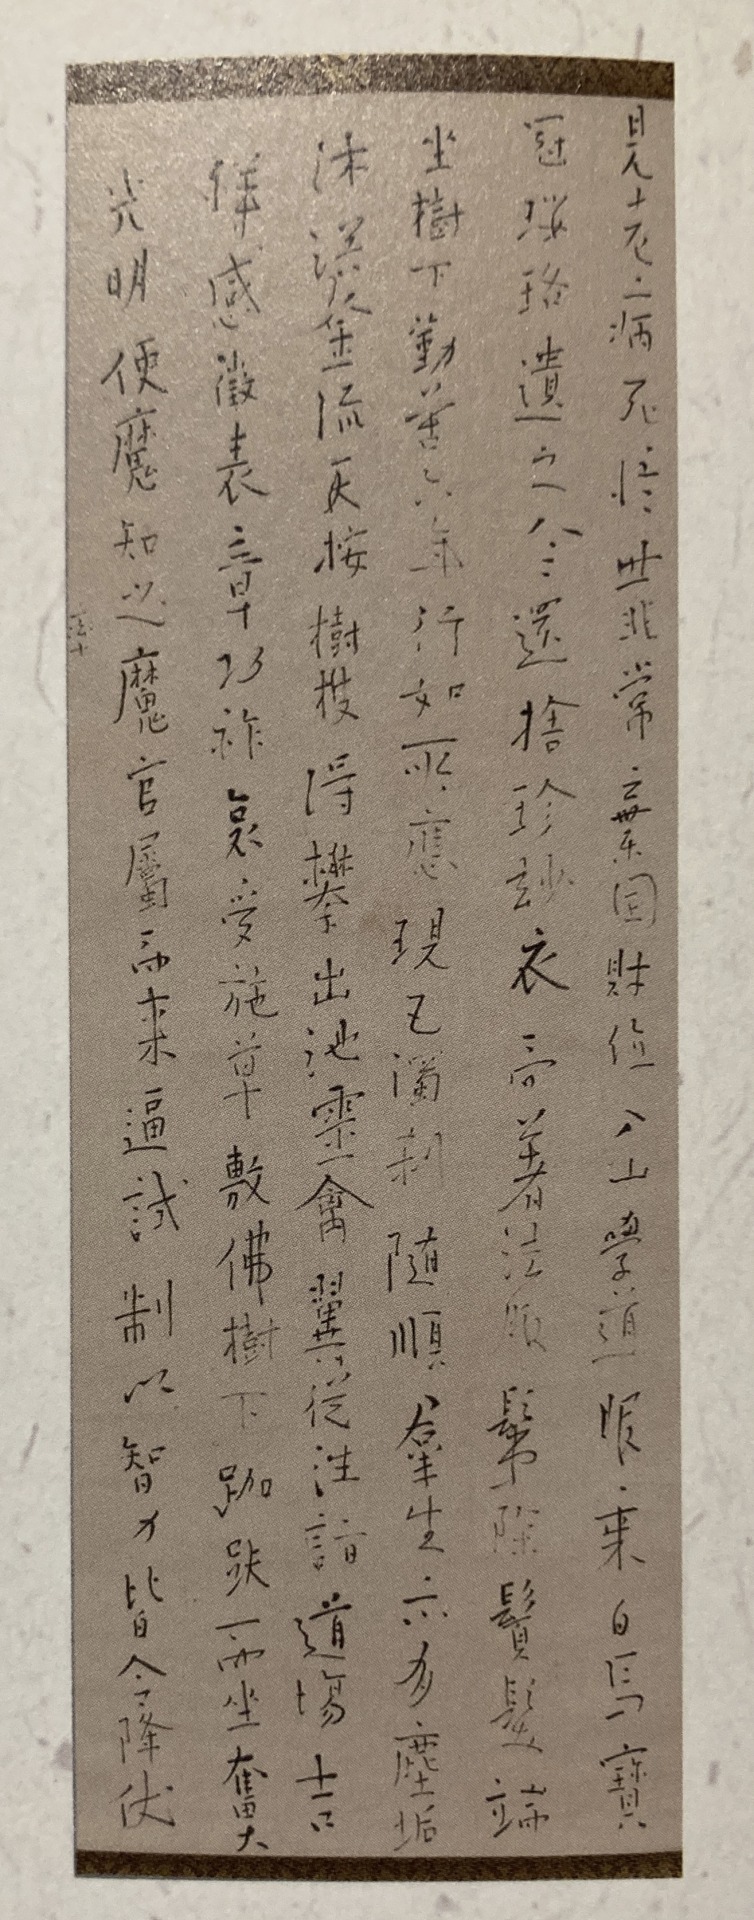 見老病死悟世非常棄国財位入山學道服乗白馬寶
冠瓔珞遣之令還捨珍妙衣而著法服鬀除鬚髮端
坐樹下勤苦六年行如所應現五濁刹随順羣生示有塵垢
沐浴金流天按樹枝得攀出池靈禽翼從往詣道場吉
祥感徵表章功祚哀受施草敷佛樹下跏趺而坐奮大
光明使魔知之魔官屬而来逼試制以智力皆令降伏
率